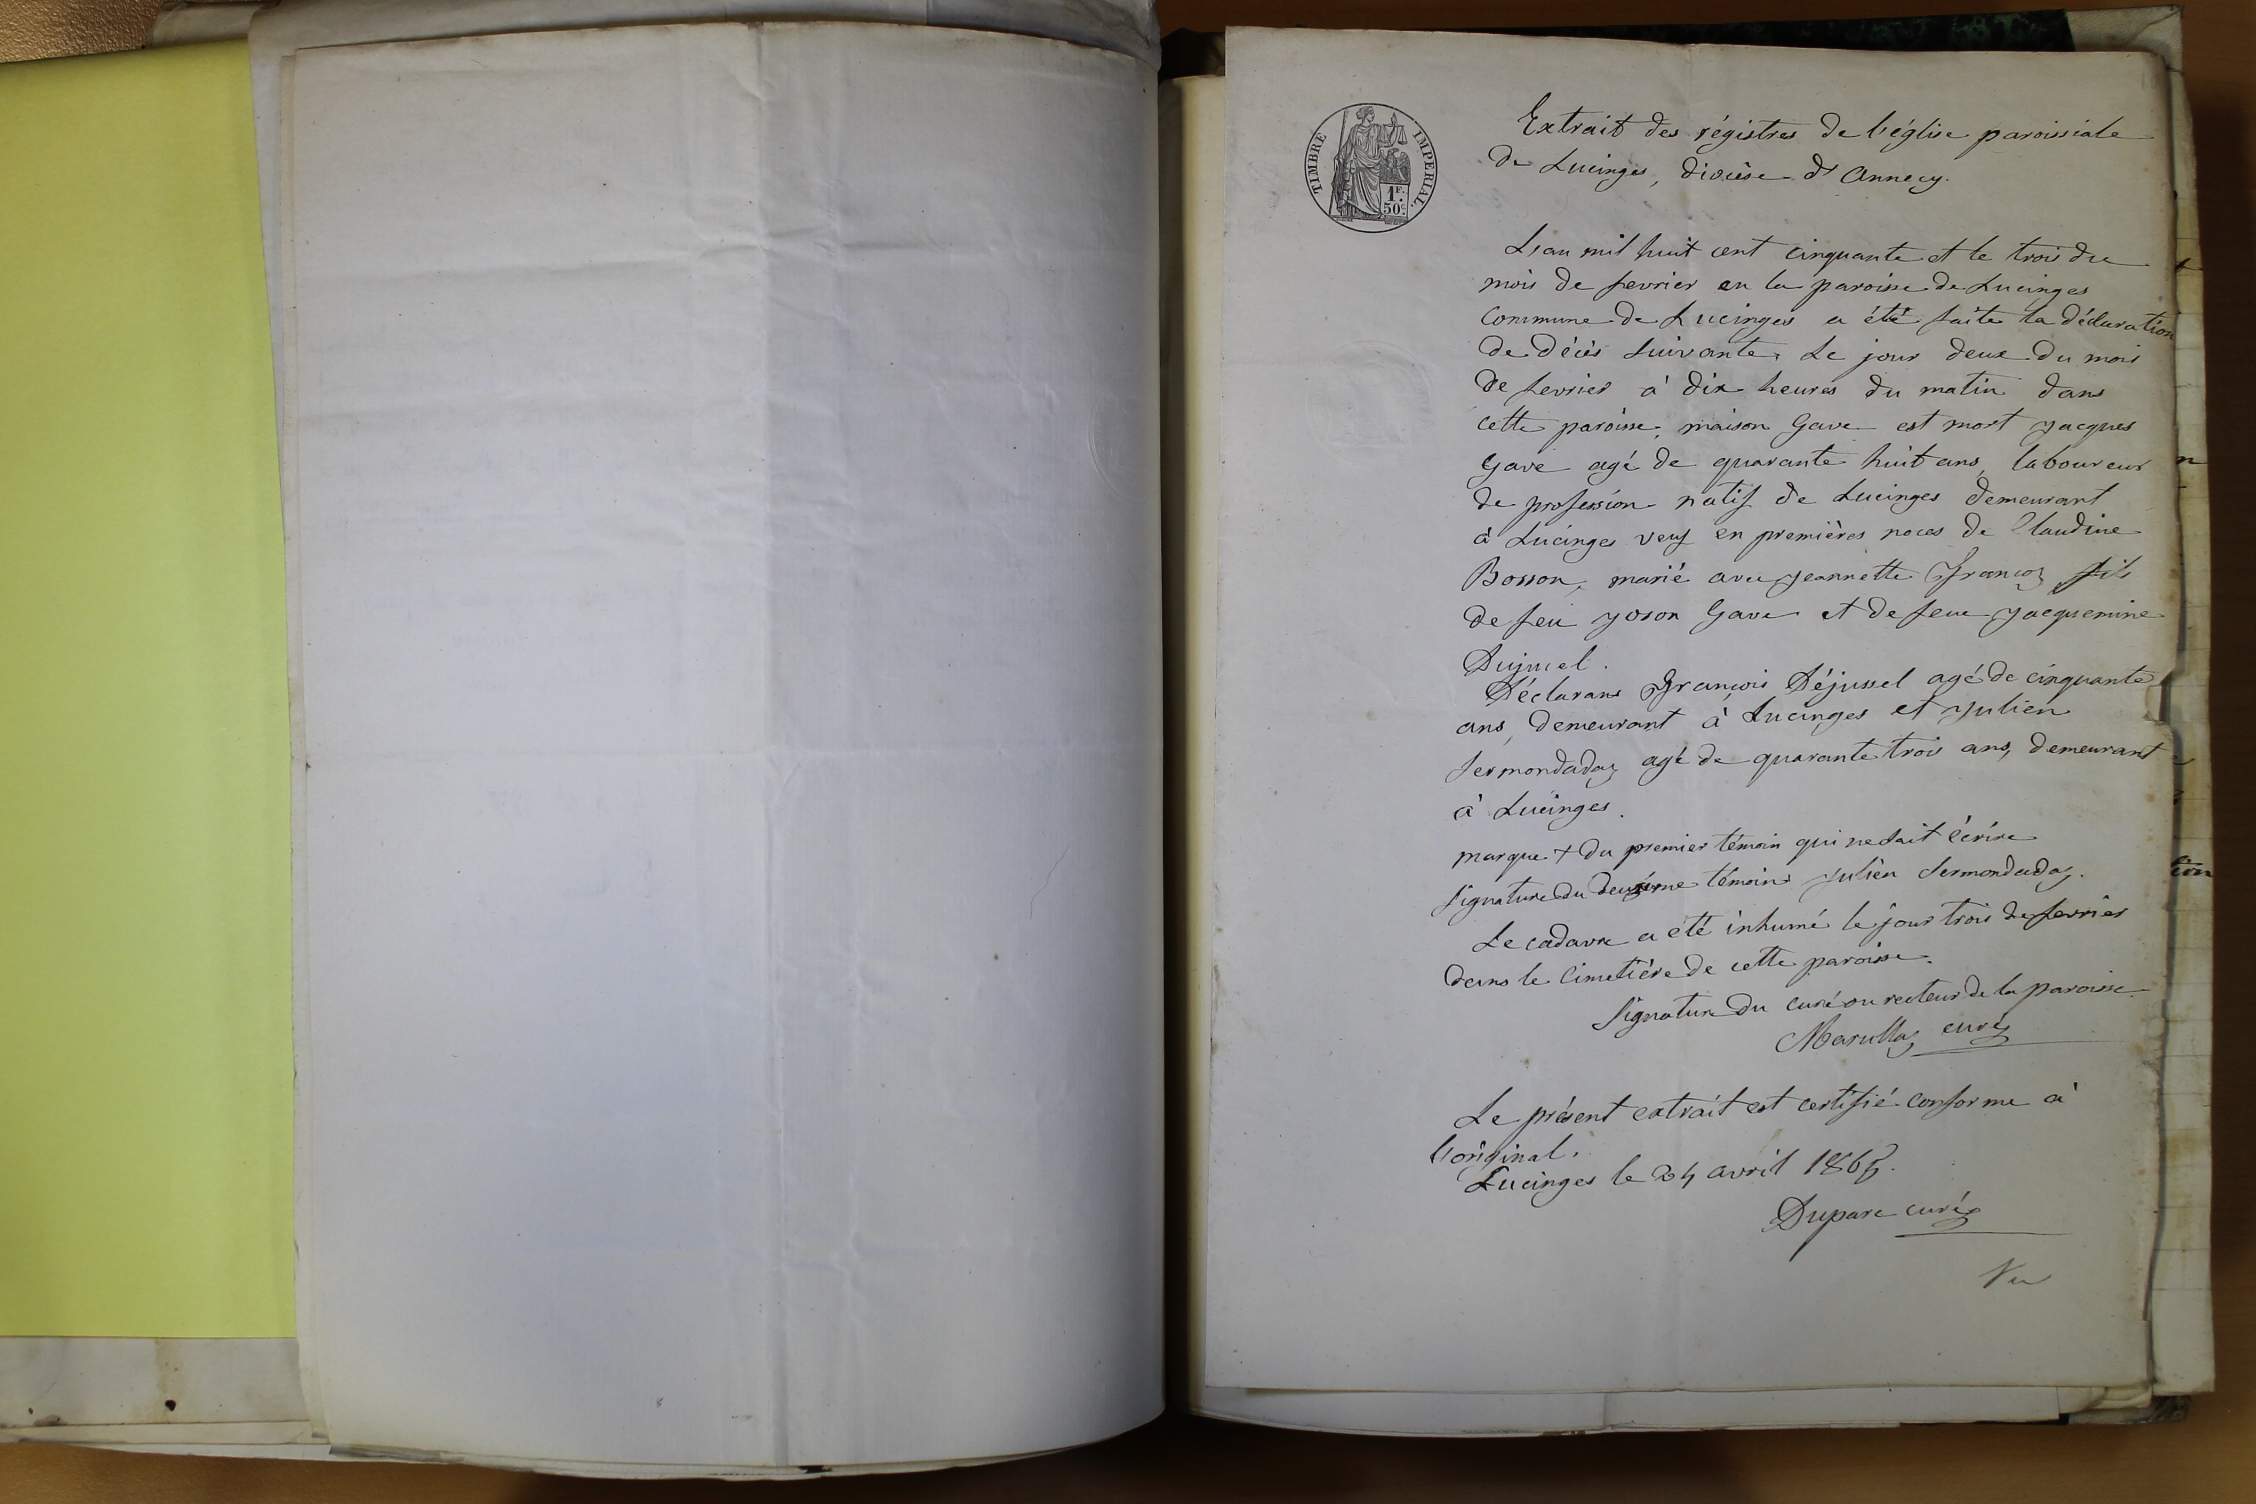 TIMBRE IMPERIAL.
1F.
50c.
Extrait des régistres de l'église paroissiale
de Lucinges, diocèse d'Annecy.
L'an mil huit cent cinquante et le trois du
mois de fevrier en la paroisse de Lucinges
commune de Lucinges a été faite la déclaration
de décès suivante. Le jour deux du mois
de fevrier à dix heures du matin dans
cette paroisse, maison Gave est mort Jacques
Gave agé de quarante huit ans, laboureur
de profession natif de Lucinges demeurant
à Lucinges veuf en premières noces de Claudine
Bosson, marié avec Jeannette Françoz fils
de feu Joson Gave et de feue Jacquemine
Déclarans François Déjussel agé de cinquante
ans, demeurant à Lucinges et Julien
Sermondadaz agé de quarante trois ans, demeurant
à Lucinges.
marque + du premier témoin qui ne sait écrire
signature du deuxième témoin Julien Sermondadaz.
Le cadavre a été inhumé le jour trois de fevrier
dans le cimetière de cette paroisse.
Signature du curé ou recteur de la paroisse
Marullaz curé
Le présent extrait est certifié conforme à
l'original.
Lucinges le 24 avril
Duparc curé
Vu